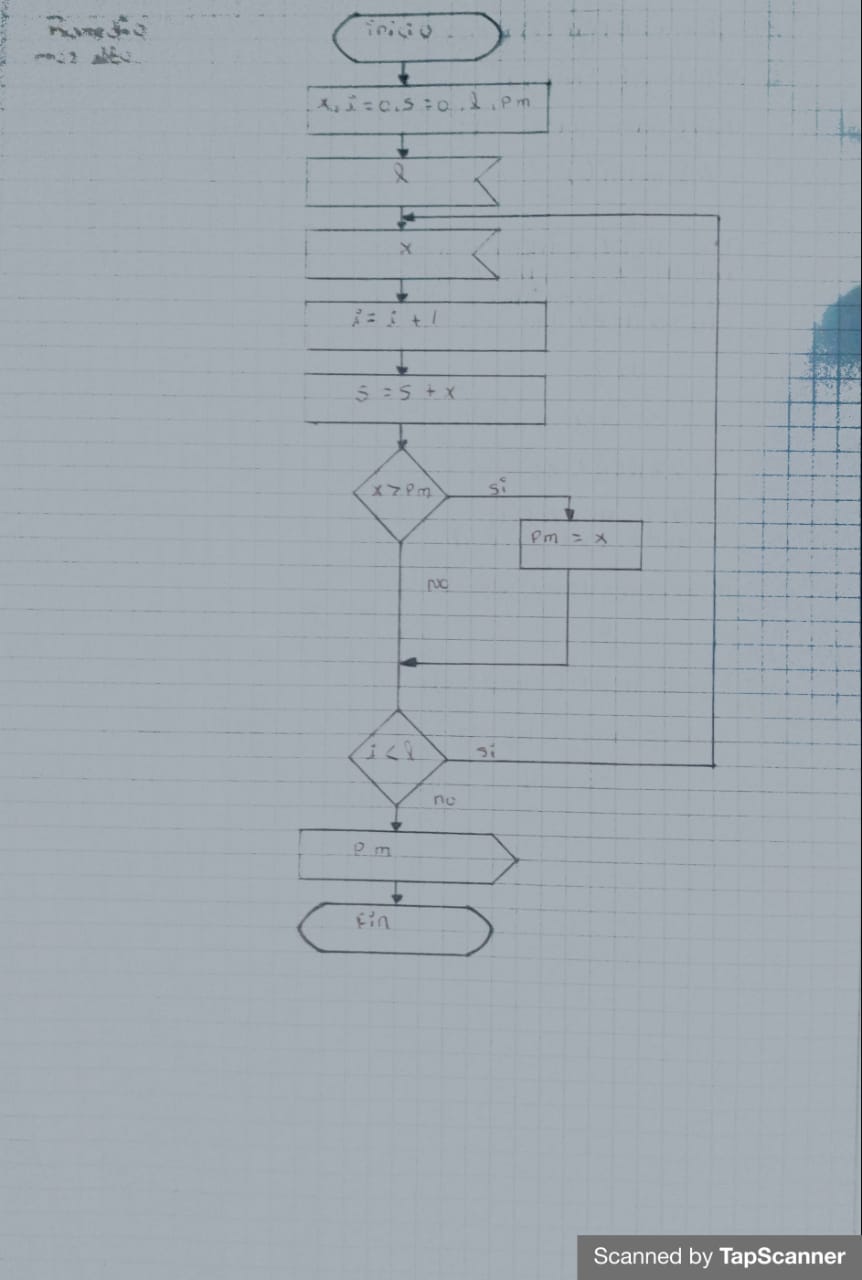 Promedio
mas alto
inicio
x, i=0, s=0, l, Pm
l
x
i= i + 1
s = s + x
x > Pm
si
Pm = x
no
i < l
si
no
Pm
fin
Scanned by TapScanner